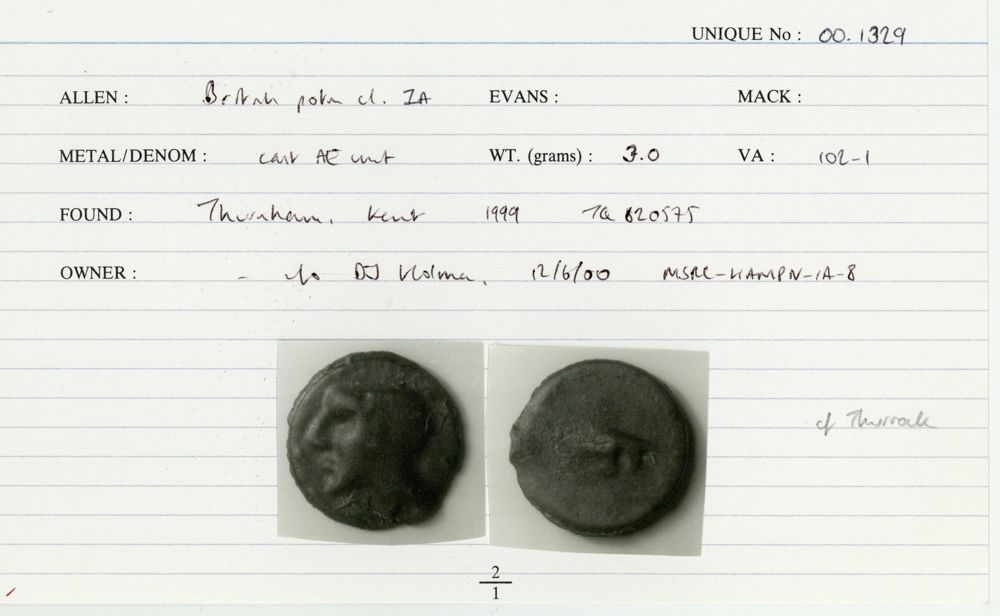 UNIQUE No : 00.1329
ALLEN : British potin cl. IA EVANS : MACK :
METAL/DENOM : cast AE unit WT. (grams) : 3.0 VA : 102-1
FOUND : Thurnham, Kent 1999 TQ 820575
OWNER : - c/o DJ Holman, 12/6/00 MSRC-HAMPN-IA-8
cf Thurrock
2
1